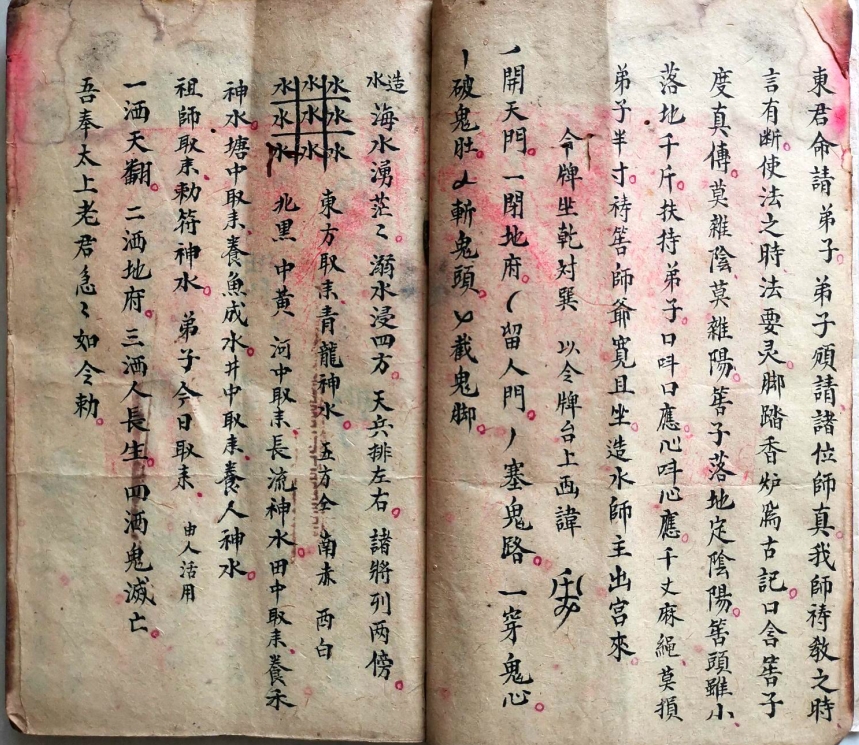 東君命請弟子弟子願請諸位師真我師待教之時
言有断使法之時法要灵脚踏香炉為古記口含筶子
度真傳莫雜陰莫雜陽筶子落地定陰陽筶頭雖小
落地千斤扶持弟子口呌口應心呌心應千丈麻繩莫損
弟子半寸待筶師爺寛且坐造水師主出宫來
令牌坐乾对巽 以令牌台上画諱
開天門一閉地府㇏留人門丿塞鬼路一穿鬼心
破鬼肚 斬鬼頭 截鬼脚
造水 海水湧茫〻溺水浸四方天兵排左右諸將列两傍
水水水
水水水
水水水
東方取来青龍神水 五方全 南赤 西白
北黑 中黄 河中取来長流神水田中取来養禾
神水塘中取来養魚成水井中取来養人神水
祖師取来勅符神水 弟子今日取来 由人活用
一洒天翻二洒地府三洒人長生四洒鬼滅亡
吾奉太上老君急〻如令勅